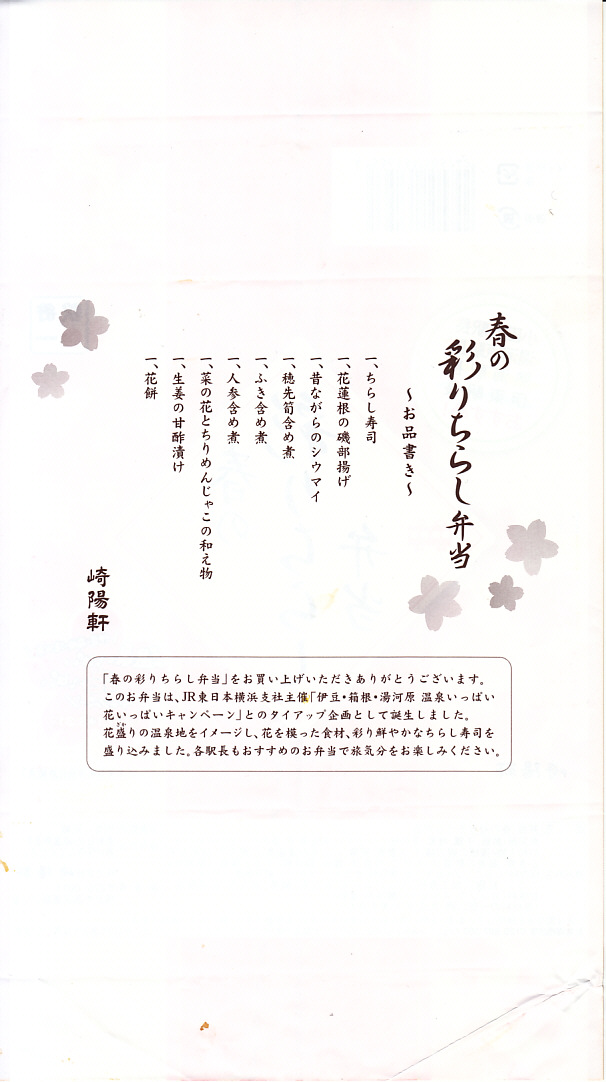 春の
彩りちらし弁当
～お品書き～
一、ちらし寿司
一、花蓮根の磯部揚げ
一、昔ながらのシウマイ
一、穂先筍含め煮
一、ふき含め煮
一、人参含め煮
一、菜の花とちりめんじゃこの和え物
一、生姜の甘酢漬け
一、花餅
崎陽軒
「春の彩りちらし弁当」をお買い上げいただきありがとうございます。
このお弁当は、JR東日本横浜支社主催「伊豆・箱根・湯河原 温泉いっぱい
花いっぱいキャンペーン」とのタイアップ企画として誕生しました。
花盛りの温泉地をイメージし、花を模った食材、彩り鮮やかなちらし寿司を
盛り込みました。各駅長もおすすめのお弁当で旅気分をお楽しみください。